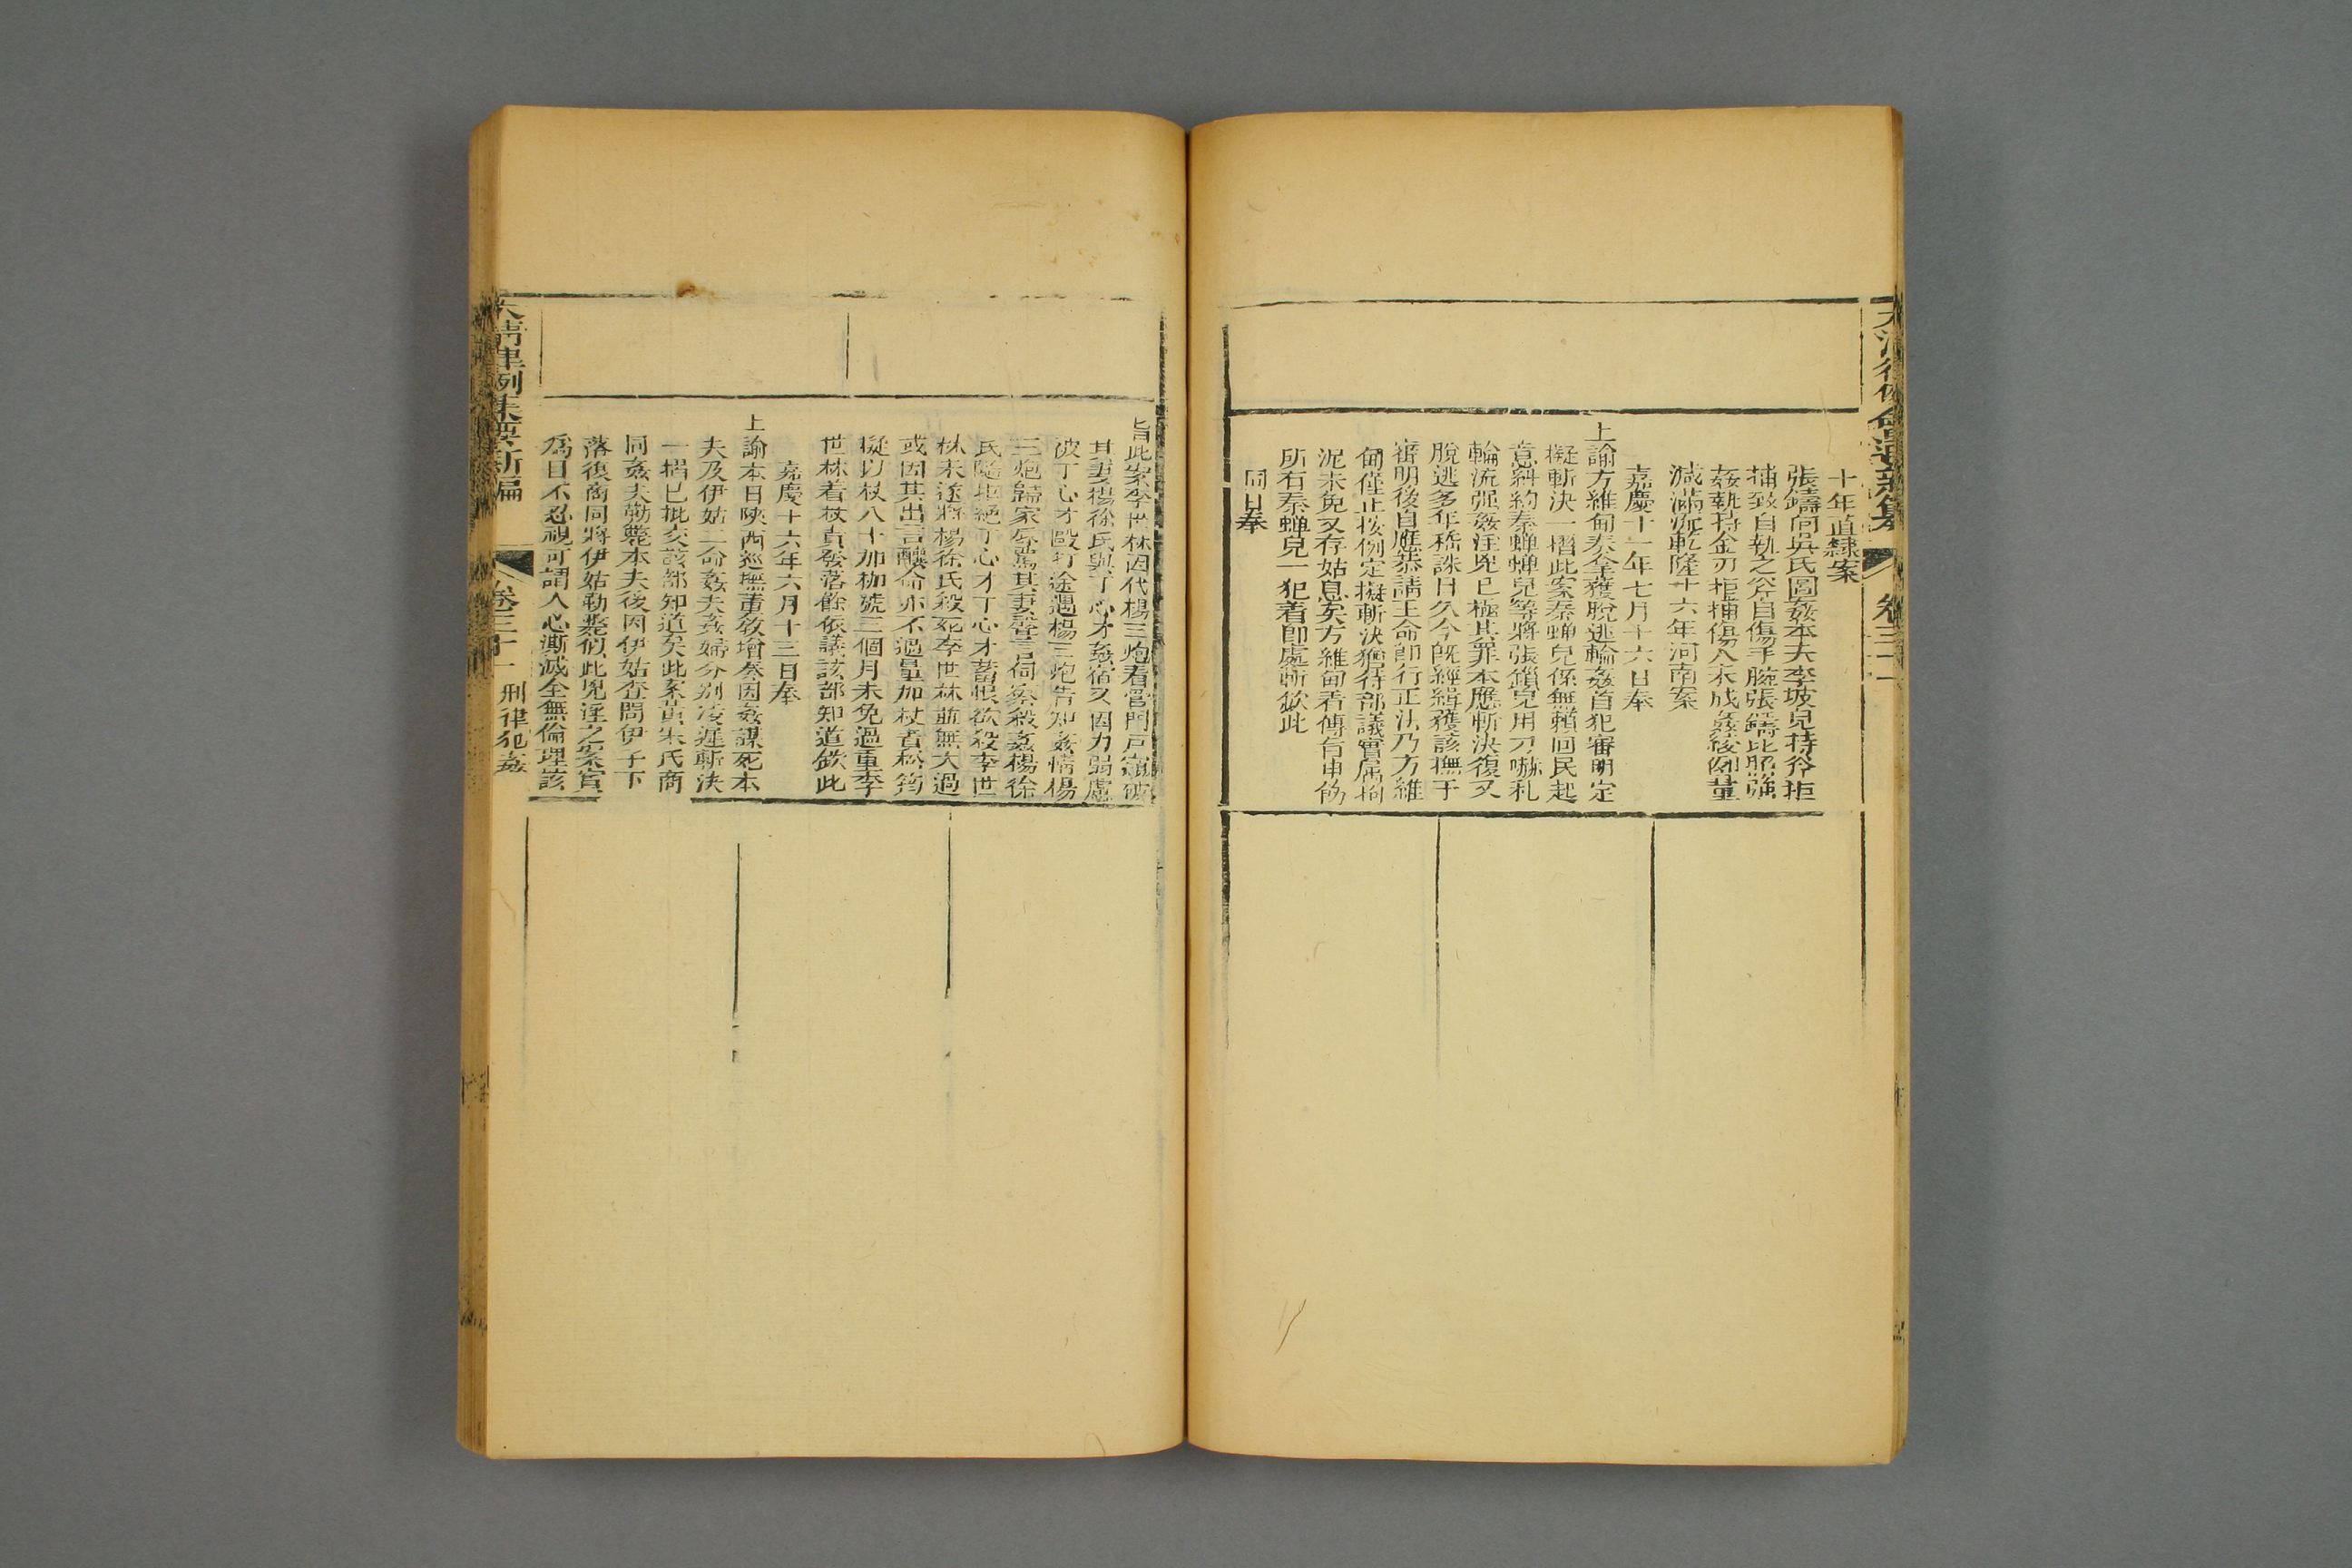 卷三十一
十年直隸案
張鑄向吳氏圖姦本夫李坡兒持斧拒
捕致自執之斧自傷手腕張鑄比照強
姦執持金刃拒捕傷人未成姦絞例量
減滿流乾隆十六年河南案
嘉慶十一年七月十六日奉
上諭方維甸奏全獲脫逃輪姦首犯審明定
擬斬決一摺此案秦蟬兒係無賴回民起
意糾約秦蟬蟬兒等將張鎖兒用刀嚇札
輪流强姦淫兇已極其罪本應斬決復又
脫逃多年稽誅日久今旣經緝獲該撫于
審明後自應恭請王命卽行正法乃方維
甸僅止按例定擬斬決猶待部議實屬拘
泥未免又存姑息矣方維甸着傳旨申飭
所有秦蟬兒一犯着卽處斬欽此
同日奉
旨此案李世林因代楊三炮看管門戶窺破
其妻楊徐氏與丁心才姦宿又因力弱慮
被丁心才毆打途遇楊三炮告知姦情楊
三炮歸家辱罵其妻聲言伺察殺姦楊徐
氏隨拒絕丁心才丁心才蓄恨欲殺李世
林未遂將楊徐氏殺死李世林並無大過
或因其出言釀命亦不過量加杖責松筠
擬以杖八十加枷號三個月未免過重李
世林着杖責發落餘依議該部知道欽此
嘉慶十六年六月十三日奉
上諭本日陝西巡撫董敎增奏因姦謀死本
夫及伊姑二命姦夫姦婦分别凌遲斬決
一摺已批交該部知道矣此案黃朱氏商
同姦夫勒斃本夫後因伊姑查問伊子下
落復商同將伊姑勒斃似此兇淫之案實
爲目不忍視可謂人心澌滅全無倫理該
大清律例集要新編
卷三十一
刑律犯姦